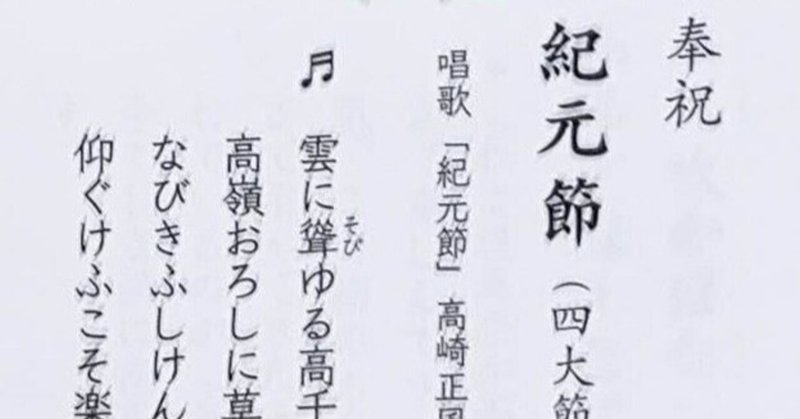 奉祝
紀元節（四大節
唱歌「紀元節」高崎正風
♬ 雲に聳ゆる高千
そび
高嶺おろしに草
なびきふしけん
仰ぐけふこそ楽